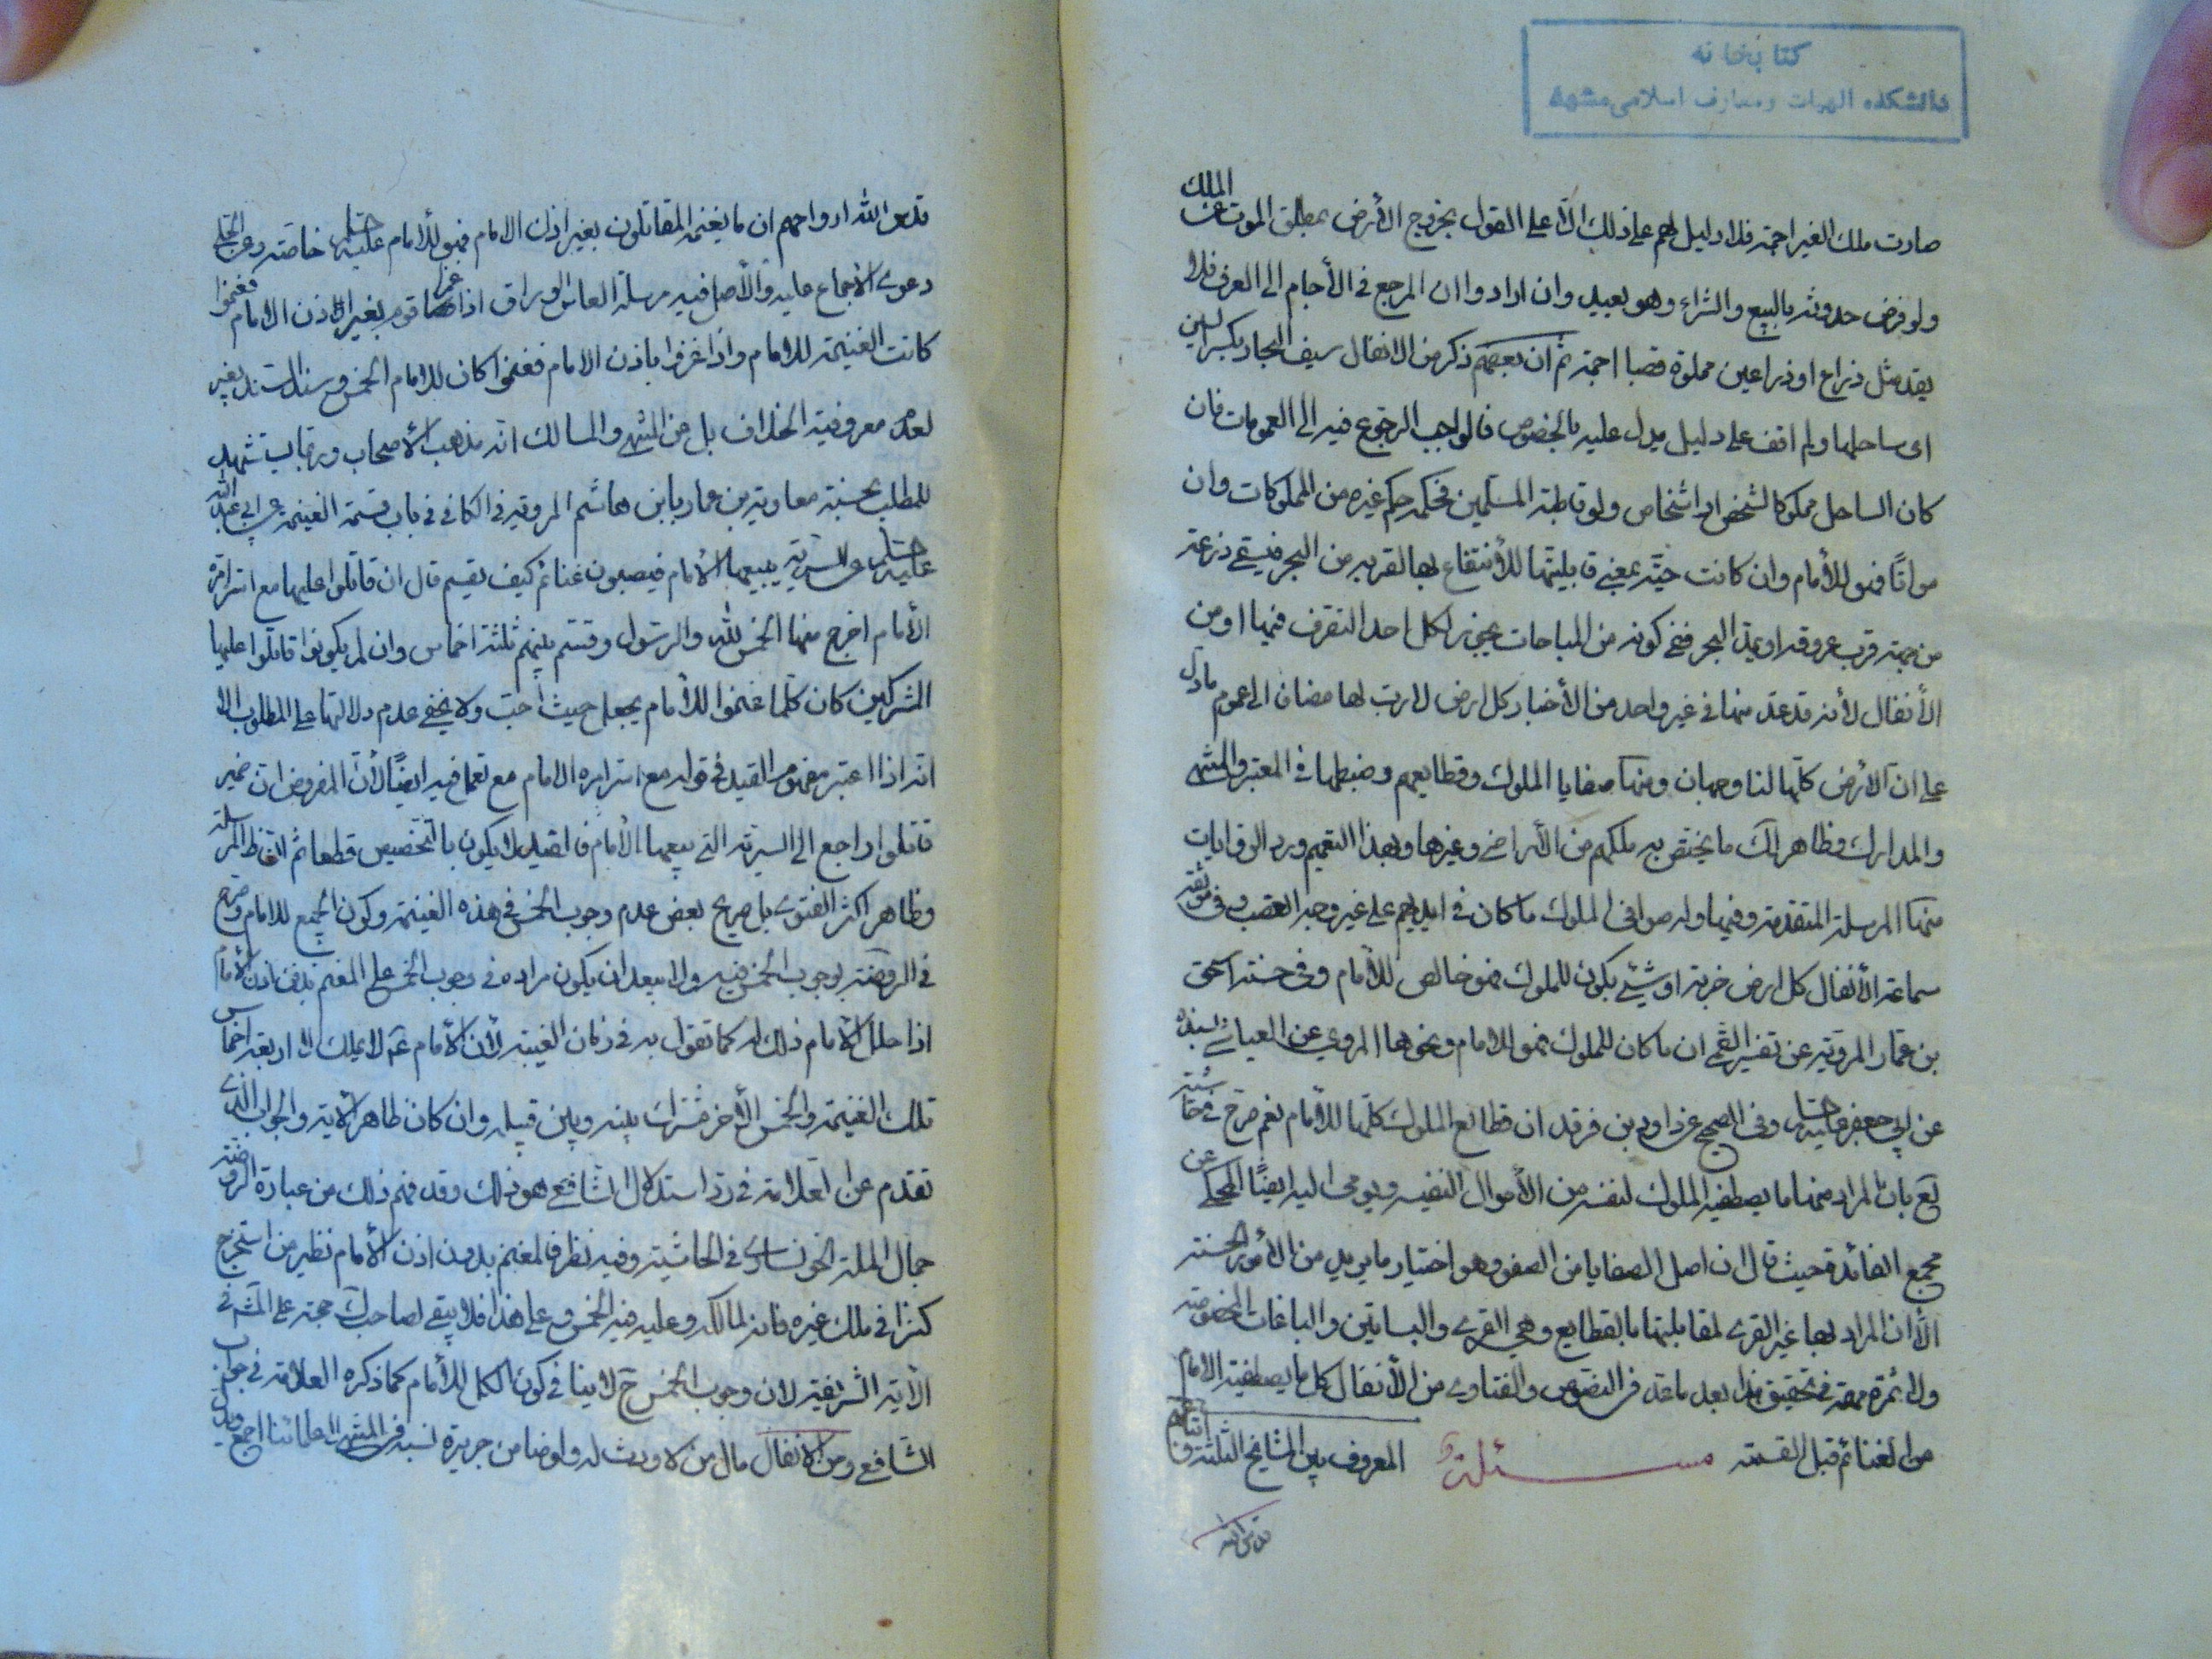 كتابخانه
دانشكده الهيات ومعارف اسلامى مشهد
صارت ملك الغير اجمة فلا دليل لهم على ذلك الّا على القول بخروج الأرض بمطلق الموت عن الملك
ولو فرض حدوثه بالبيع والشراء وهو بعيد وان ارادوا ان المرجع في الأجام الى العرف فلا
يعد مثل ذراع او ذراعين مملوة قصبا اجمة ثم ان بعضهم ذكر من الانفال سيف البحار بكسر السين
اى ساحلها ولم اقف على دليل يدل عليه بالخصوص فالواجب الرجوع فيه الى العمومات فان
كان الساحل مملوكا لشخص او اشخاص ولو قاطبة المسلمين فحكمه حكم غيره من المملوكات وان
مواتًا فهو للأمام وان كانت حيّة بمعنى قابليتها للأنتفاع بها لقربه من البحر فيستقى زرعه
من جهة قرب عروقه او بمد البحر ففى كونه من المباحات يجوز لكل احد التصرف فيها او من
الأنفال لأنه قد عد منها في غير واحد من الأخبار كل ارض لا رب لها مضافا الى عموم ما دل
على ان الأرض كلها لنا وجهان ومنها صفايا الملوك وقطايعهم وضبطها في المعتبر والمنتهى
والمدارك وظاهر لك ما يختص به ملكهم من الأراضى وغيرها وبهذا التعميم ورد الروايات
منها المرسلة المتقدمة وفيها وله صوافى الملوك ما كان في ايديهم على غير وجه الغصب وفى موثقة
سماعة الأنفال كل ارض خربة او شيئ يكون للملوك فهو خالص للأمام وفى حسنة اسحق
بن عمار المروية عن تفسير القمى ان ما كان للملوك فهو للامام ونحوها المروي عن العياشى بسنده
عن ابى جعفر عليه السلام وفى الصحيح عن داود بن فرقد ان قطايع الملوك كلها للأمام نعم صرح في حاشية
لع بان المراد منها ما يصطفيه الملوك لنفسه من الأموال النفيسه ويومى اليه ايضًا المحكى عن
مجمع الفائدة حيث قال ان اصل الصفايا من الصفو وهو اختيار ما يريد من الأمور الحسنة
الّا ان المراد بها غير القرى لمقابلتها بالقطايع وهى القرى والبساتين والباغات المخصوصة
ولا ثمرة مهمة في تحقيق هذا بعد ما عد في النصوص والفتاوى من الأنفال كل ما يصطفيه الامام
من الغنائم قبل القسمة مسئلة المعروف بين المشايخ الثلثة واتباعهم
قدس الله
قدس الله ارواحهم ان ما يغنمه المقاتلون بغير اذن الامام فهو للأمام عليه السلام خاصة وعن الحلى
دعوى الأجماع عليه والأصل فيه مرسلة العباس الوراق اذا غزا قوم بغير اذن الامام فغنموا
كانت الغنيمة للامام واذا غزوا باذن الامام فغنموا كان للامام الخمس
لعدم معروفية الخلاف بل عن المنتهى والمسالك انه مذهب الأصحاب وربما يستشهد
للمطلب بحسنة معاوية بن عمار بابن هاشم المروية في الكافى في باب قسمة الغنيمة عن ابى عبد الله
عليه السلام عن السرية يبعثها الأمام فيصيبون غنائم كيف يقسم قال ان قاتلوا عليها مع امير امره
الأمام اخرج منها الخمس لله والرسول وقسم بينهم ثلثة اخماس وان لم يكونوا قاتلوا عليها
المشركين كان كلما غنموا للأمام يجعله حيث احب ولا يخفى عدم دلالتها على المطلوب الا
انه اذا اعتبر مفهوم القيد في قوله مع امير امره الامام مع تعماع فيه ايضًا لأن المفروض ان ضمير
قاتلوا راجع الى السرية التى يبعثها الأمام فالقيد لا يكون بالتخصيص قطعا ثم الظ المرسلة
وظاهر اكثر الفتوى بل صريح بعض عدم وجوب الخمس في هذه الغنيمة وكون الجميع للامام وصرح
في الروضة بوجوب الخمس فيه ولا يبعد ان يكون مراده في وجوب الخمس على المغتنم بدون اذن الأمام
اذا حلل الأمام ذلك له كما تقول به في زمان الغيبة لأن الأمام ع لا يملك الا اربعة اخماس
تلك الغنيمة والخمس الأخر مشترك بينه وبين قبيله وان كان ظاهر الأية والجواب الذى
تقدم عن العلامة في رد استدلال الشافعى هو ذلك وقد فهم ذلك من عبارة الروضة
جمال الملة الخونسارى في الحاشية وفيه نظر فالمغنم بدون اذن الأمام نظير من استخرج
كنزا في ملك غيره فانه لمالكه وعليه فيه الخمس وعلى هذا فلا يبقى لصاحب ك حجة على المشهور في
الأية الشريفة لان وجوب الخمس ح لا ينافى كون الكل للأمام كما ذكره العلامة في جواب
الشافعى ومن الانفال مال من لا وارث له ولو ضامن جريرة نسبه في المنتهى الى علمائنا اجمع